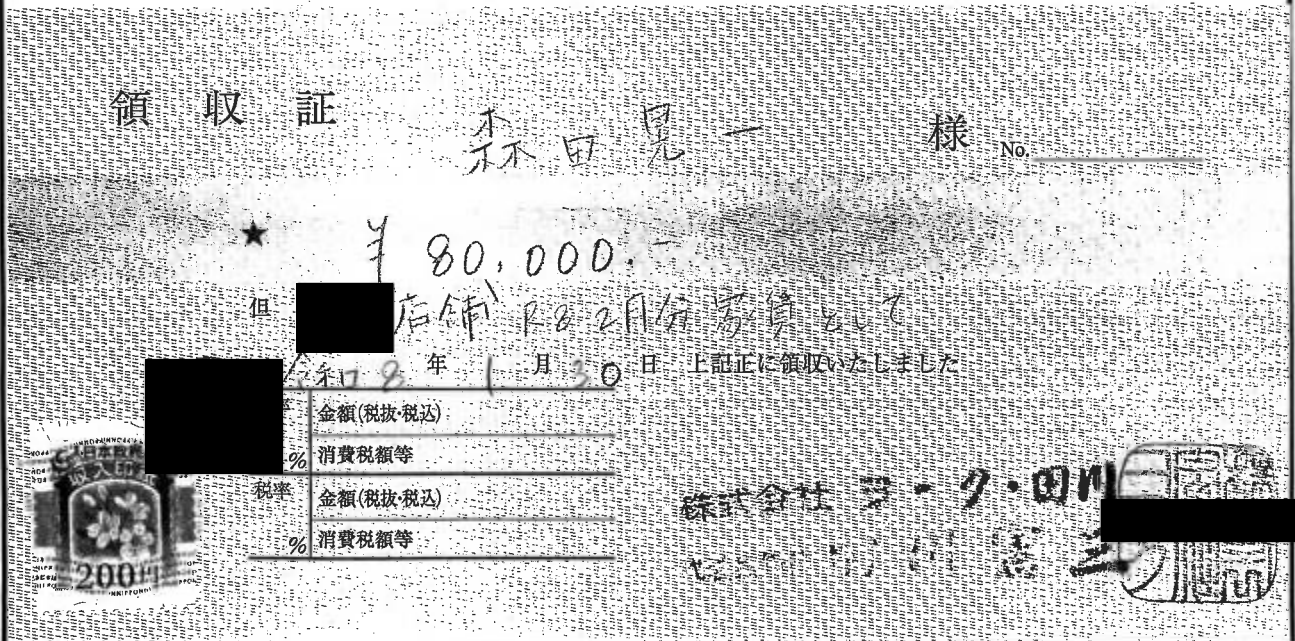 領収証 森田晃一 様 No.
★ ¥80,000.-
但 店舗 R8 2月分 家賃として
令和8年1月30日 上記正に領収いたしました
金額(税抜・税込)
% 消費税額等
税率 金額(税抜・税込)
% 消費税額等
日本政府
200円
株式会社 ヨーク・田川